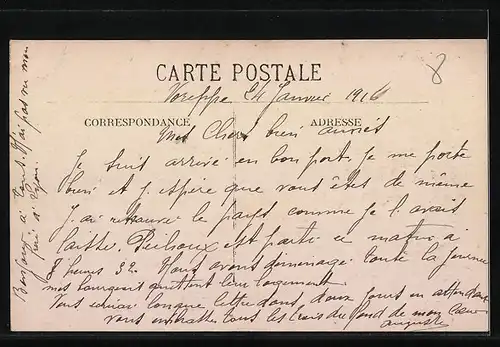 CARTE POSTALE
Voreppe 24 Janvier 1916
CORRESPONDANCE
ADRESSE
Mes Chers bien aimés
Je suis arrivé en bon port. Je me porte
bien et j espère que vous êtes de même
J ai retrouvé le pays comme je l avait
laissé. est parti ce matin à
heures 32. Nous avons déménagé toute la journée
nos bourgeois quittent leur logement
Vous longue lettre dans deux jours en attendant
vous embrasse tous les trois du fond de mon cœur
auguste
Bonjour à tous. J'ai pas vu mon
à Lyon.
8